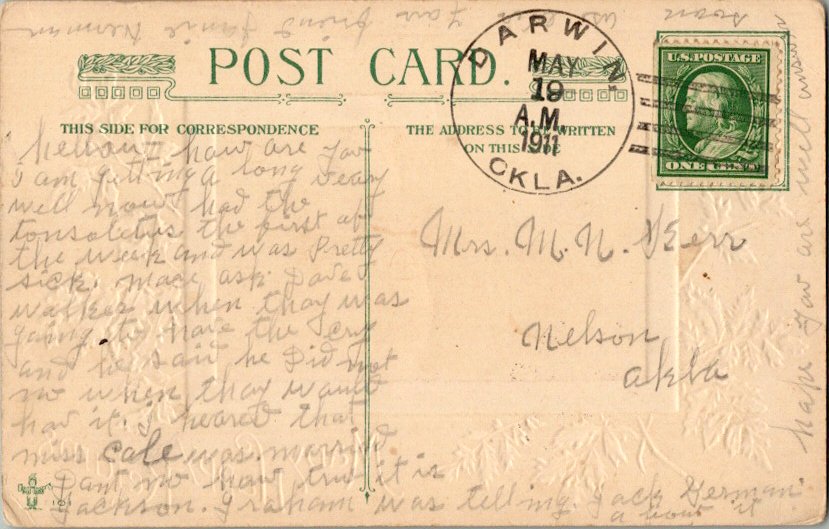 POST CARD.
DARWIN,
MAY
19
A.M.
1911
OKLA.
U.S. POSTAGE
ONE CENT
THIS SIDE FOR CORRESPONDENCE
THE ADDRESS TO BE WRITTEN
ON THIS SIDE
how are you
I am getting a long veary
well now had the
tonsoletus the first of
the week and was Pretty
sick. mace ask Dave
walker when thay was
going to have the cry
and he said he did not
no when thay would
hav it. I heared that
miss cale was married
Dant no how tru it is
Jackson. Graham was telling Jack German
a bout it
Mrs. M. N. Kerr
Nelson
akla
hape you are well answer
soon
as
friend